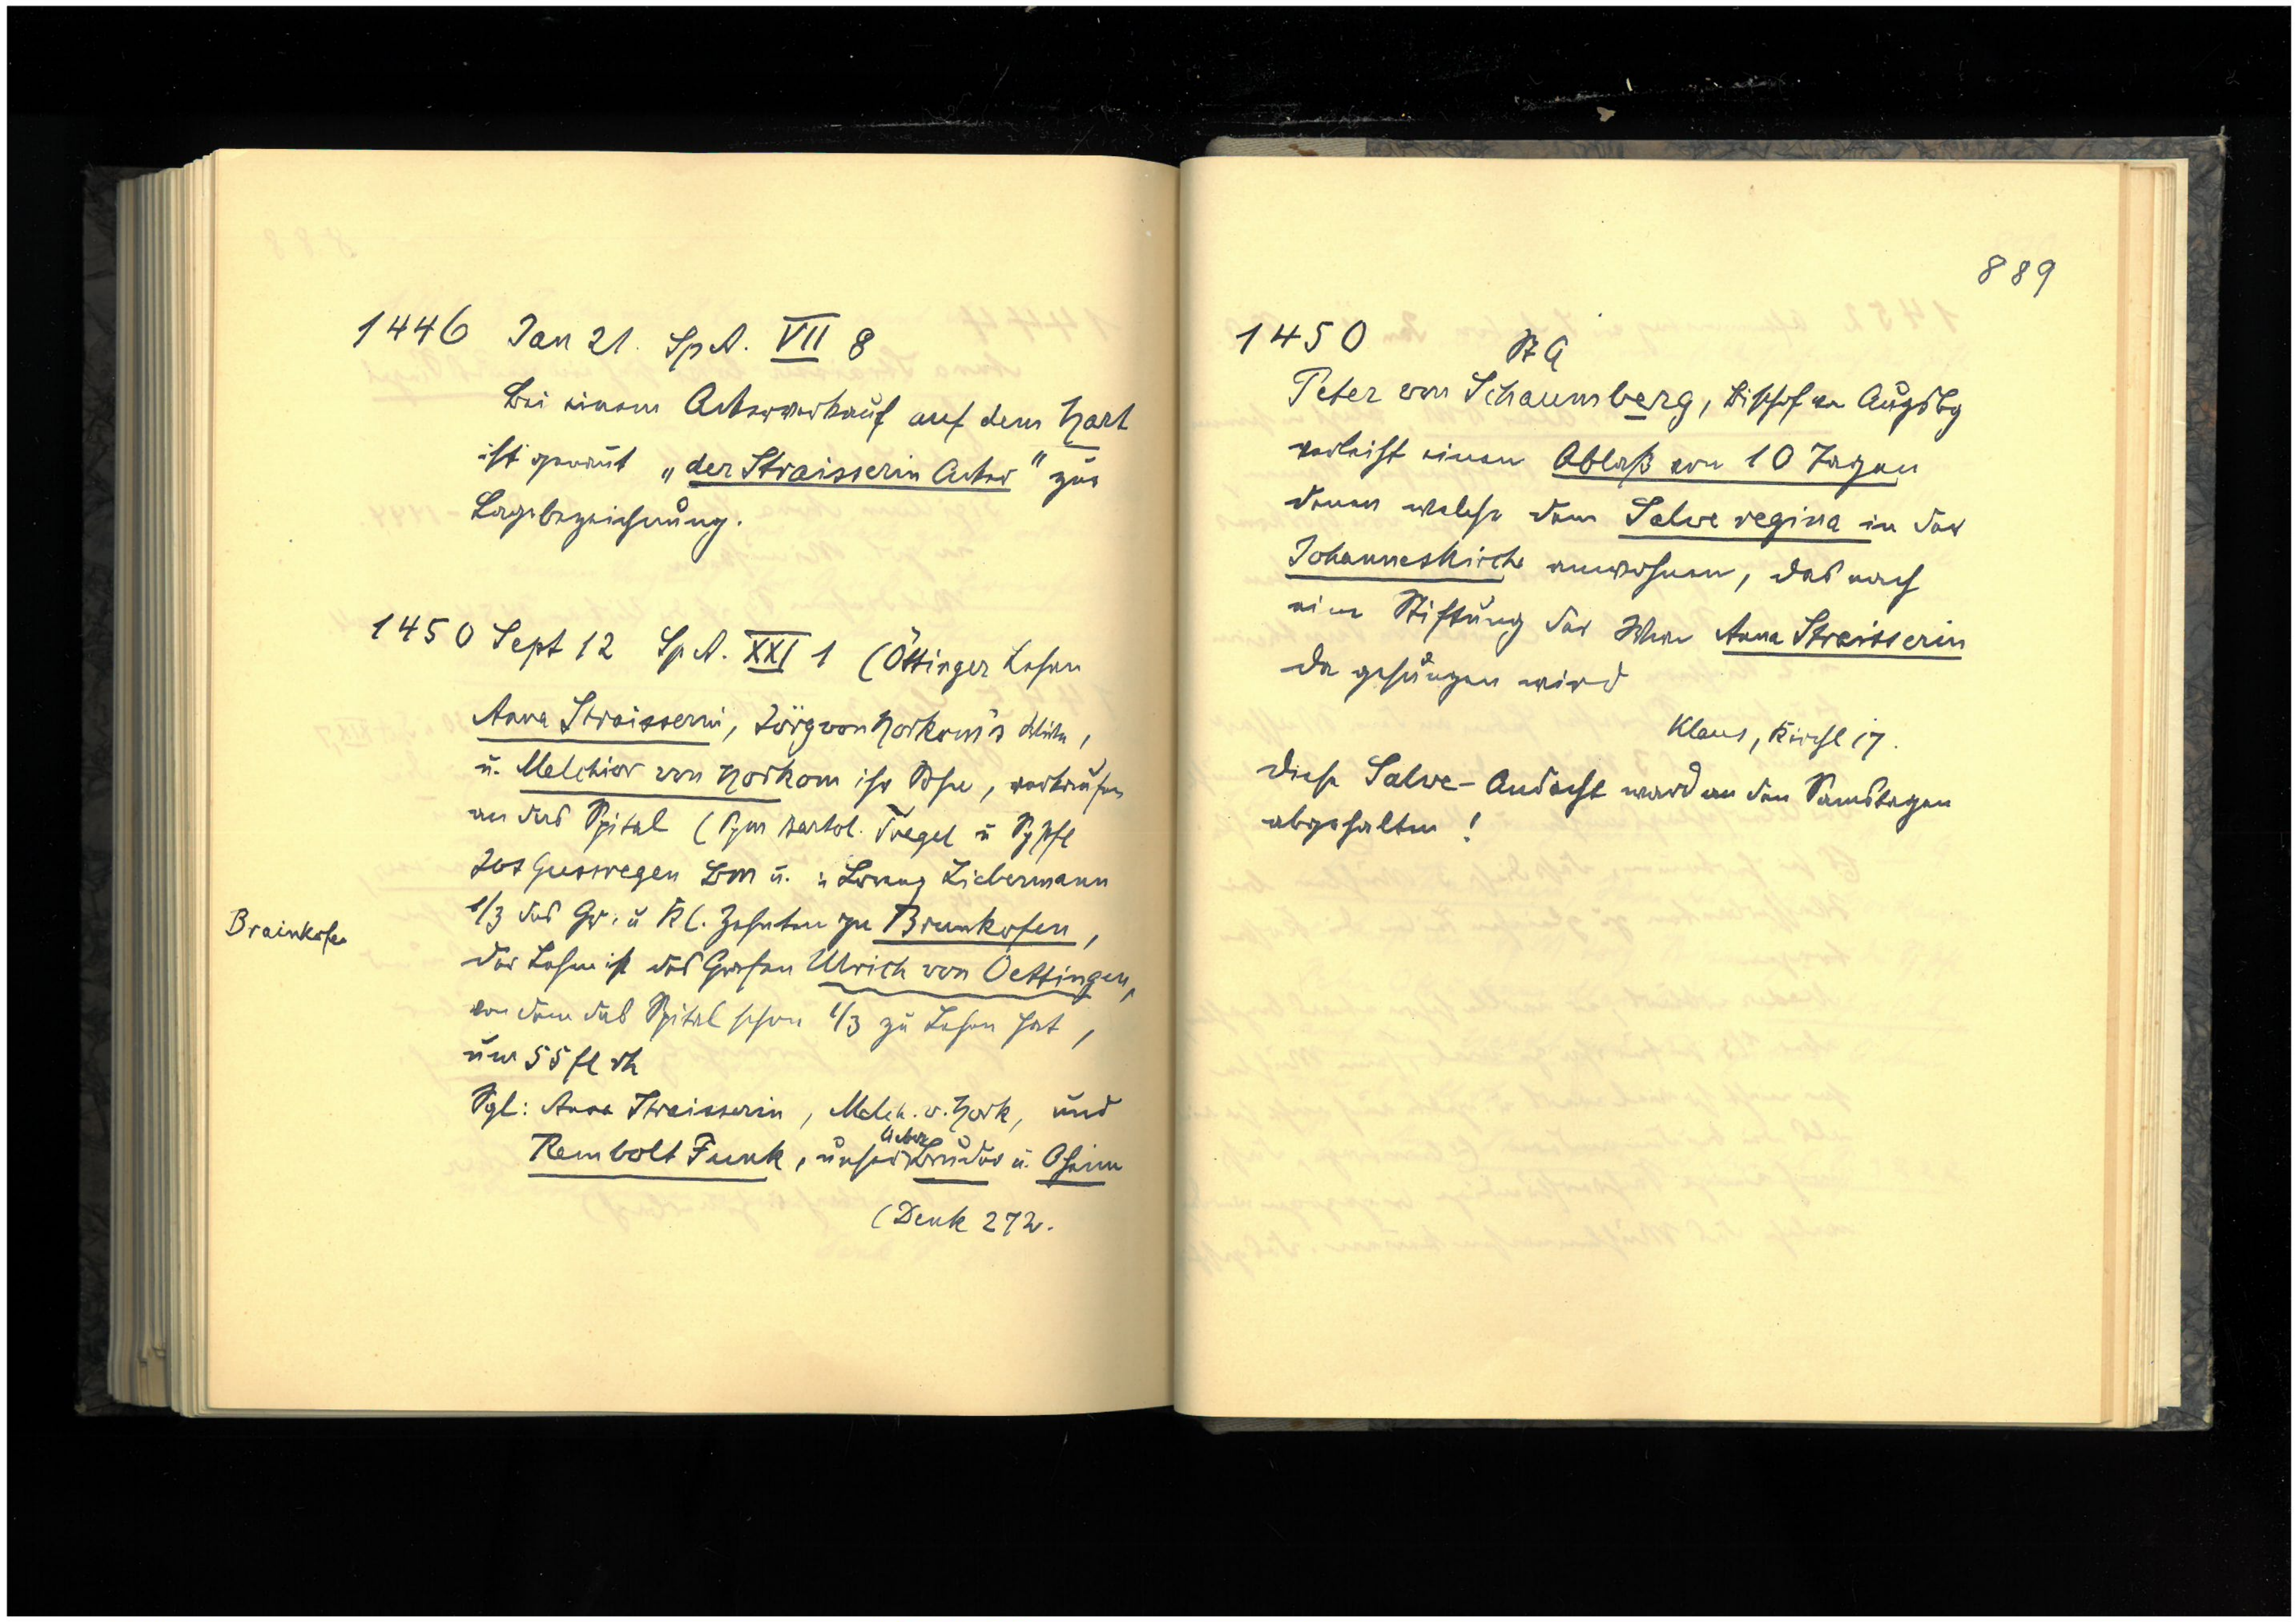 1446 Jan 21. Sp A. VII 8
Bei einem Ackerverkauf auf dem Hart
ist genannt „der Straisserin Acker" zur
Lagebezeichnung.
1450 Sept 12 Sp A. XXI 1 (Öttinger Lehen
Anna Straisserin, Jörg von Horkom's Witwe,
u. Melchior von Horkom ihr Sohn, verkaufen
an das Spital (Spm Bartol. Tregel u Spfl
Jos Guswegen Bm u. : Lorenz Liebermann
1/3 des Gr. u Kl. Zehnten zu Brunkofen,
Brainkofen
der Lehen ist des Grafen Ulrich von Oettingen,
von dem das Spital schon 1/3 zu Lehen hat,
um 55 fl rh
Sgl: Anna Straisserin, Melch. v. Hork, und
Rembolt Funk, unser lieber Bruder u. Oheim
(Denk 272.
889
1450
St A
Peter von Schaumberg, Bischof von Augsbg
verleiht einen Ablaß von 10 Tagen
denen welche dem Salve regina in der
Johanneskirche anwohnen, das nach
einer Stiftung der Wwe Anna Streisserin
da gesungen wird
Klaus, Kirchl 17.
Diese Salve-Andacht ward an den Samstagen
abgehalten!